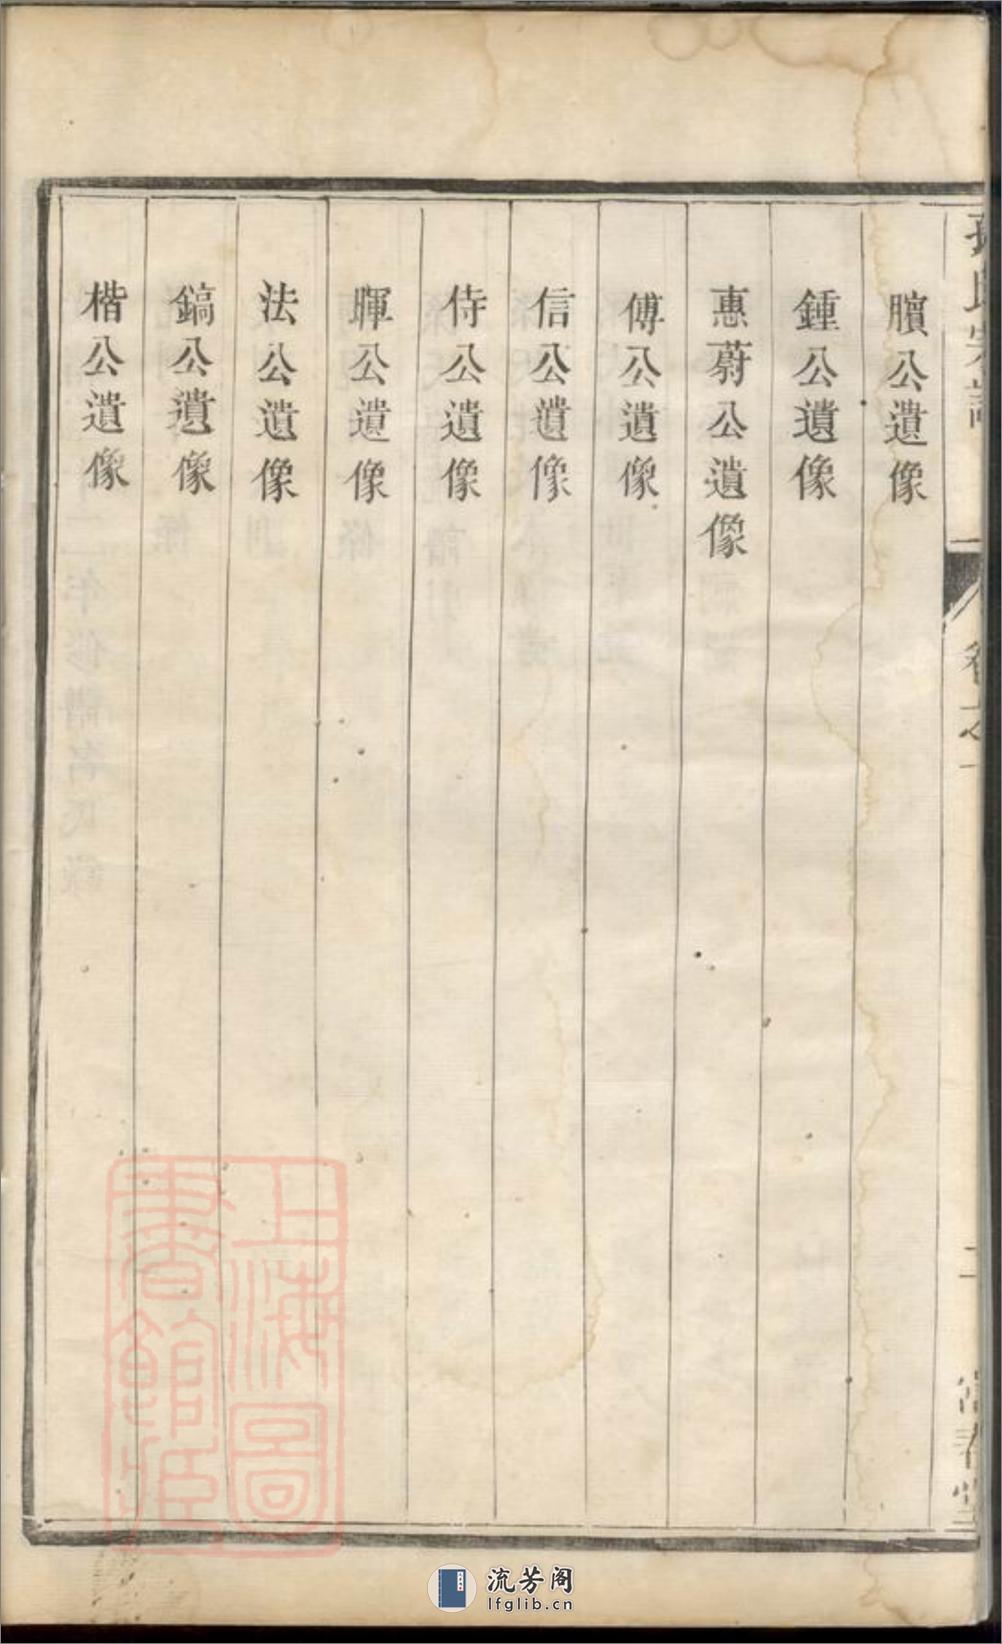 臏公遺像
鍾公遺像
惠蔚公遺像
傅公遺像
信公遺像
侍公遺像
暉公遺像
法公遺像
鎬公遺像
楷公遺像
孫氏宗譜
卷之一
上海圖書館藏
流芳阁
lfglib.cn